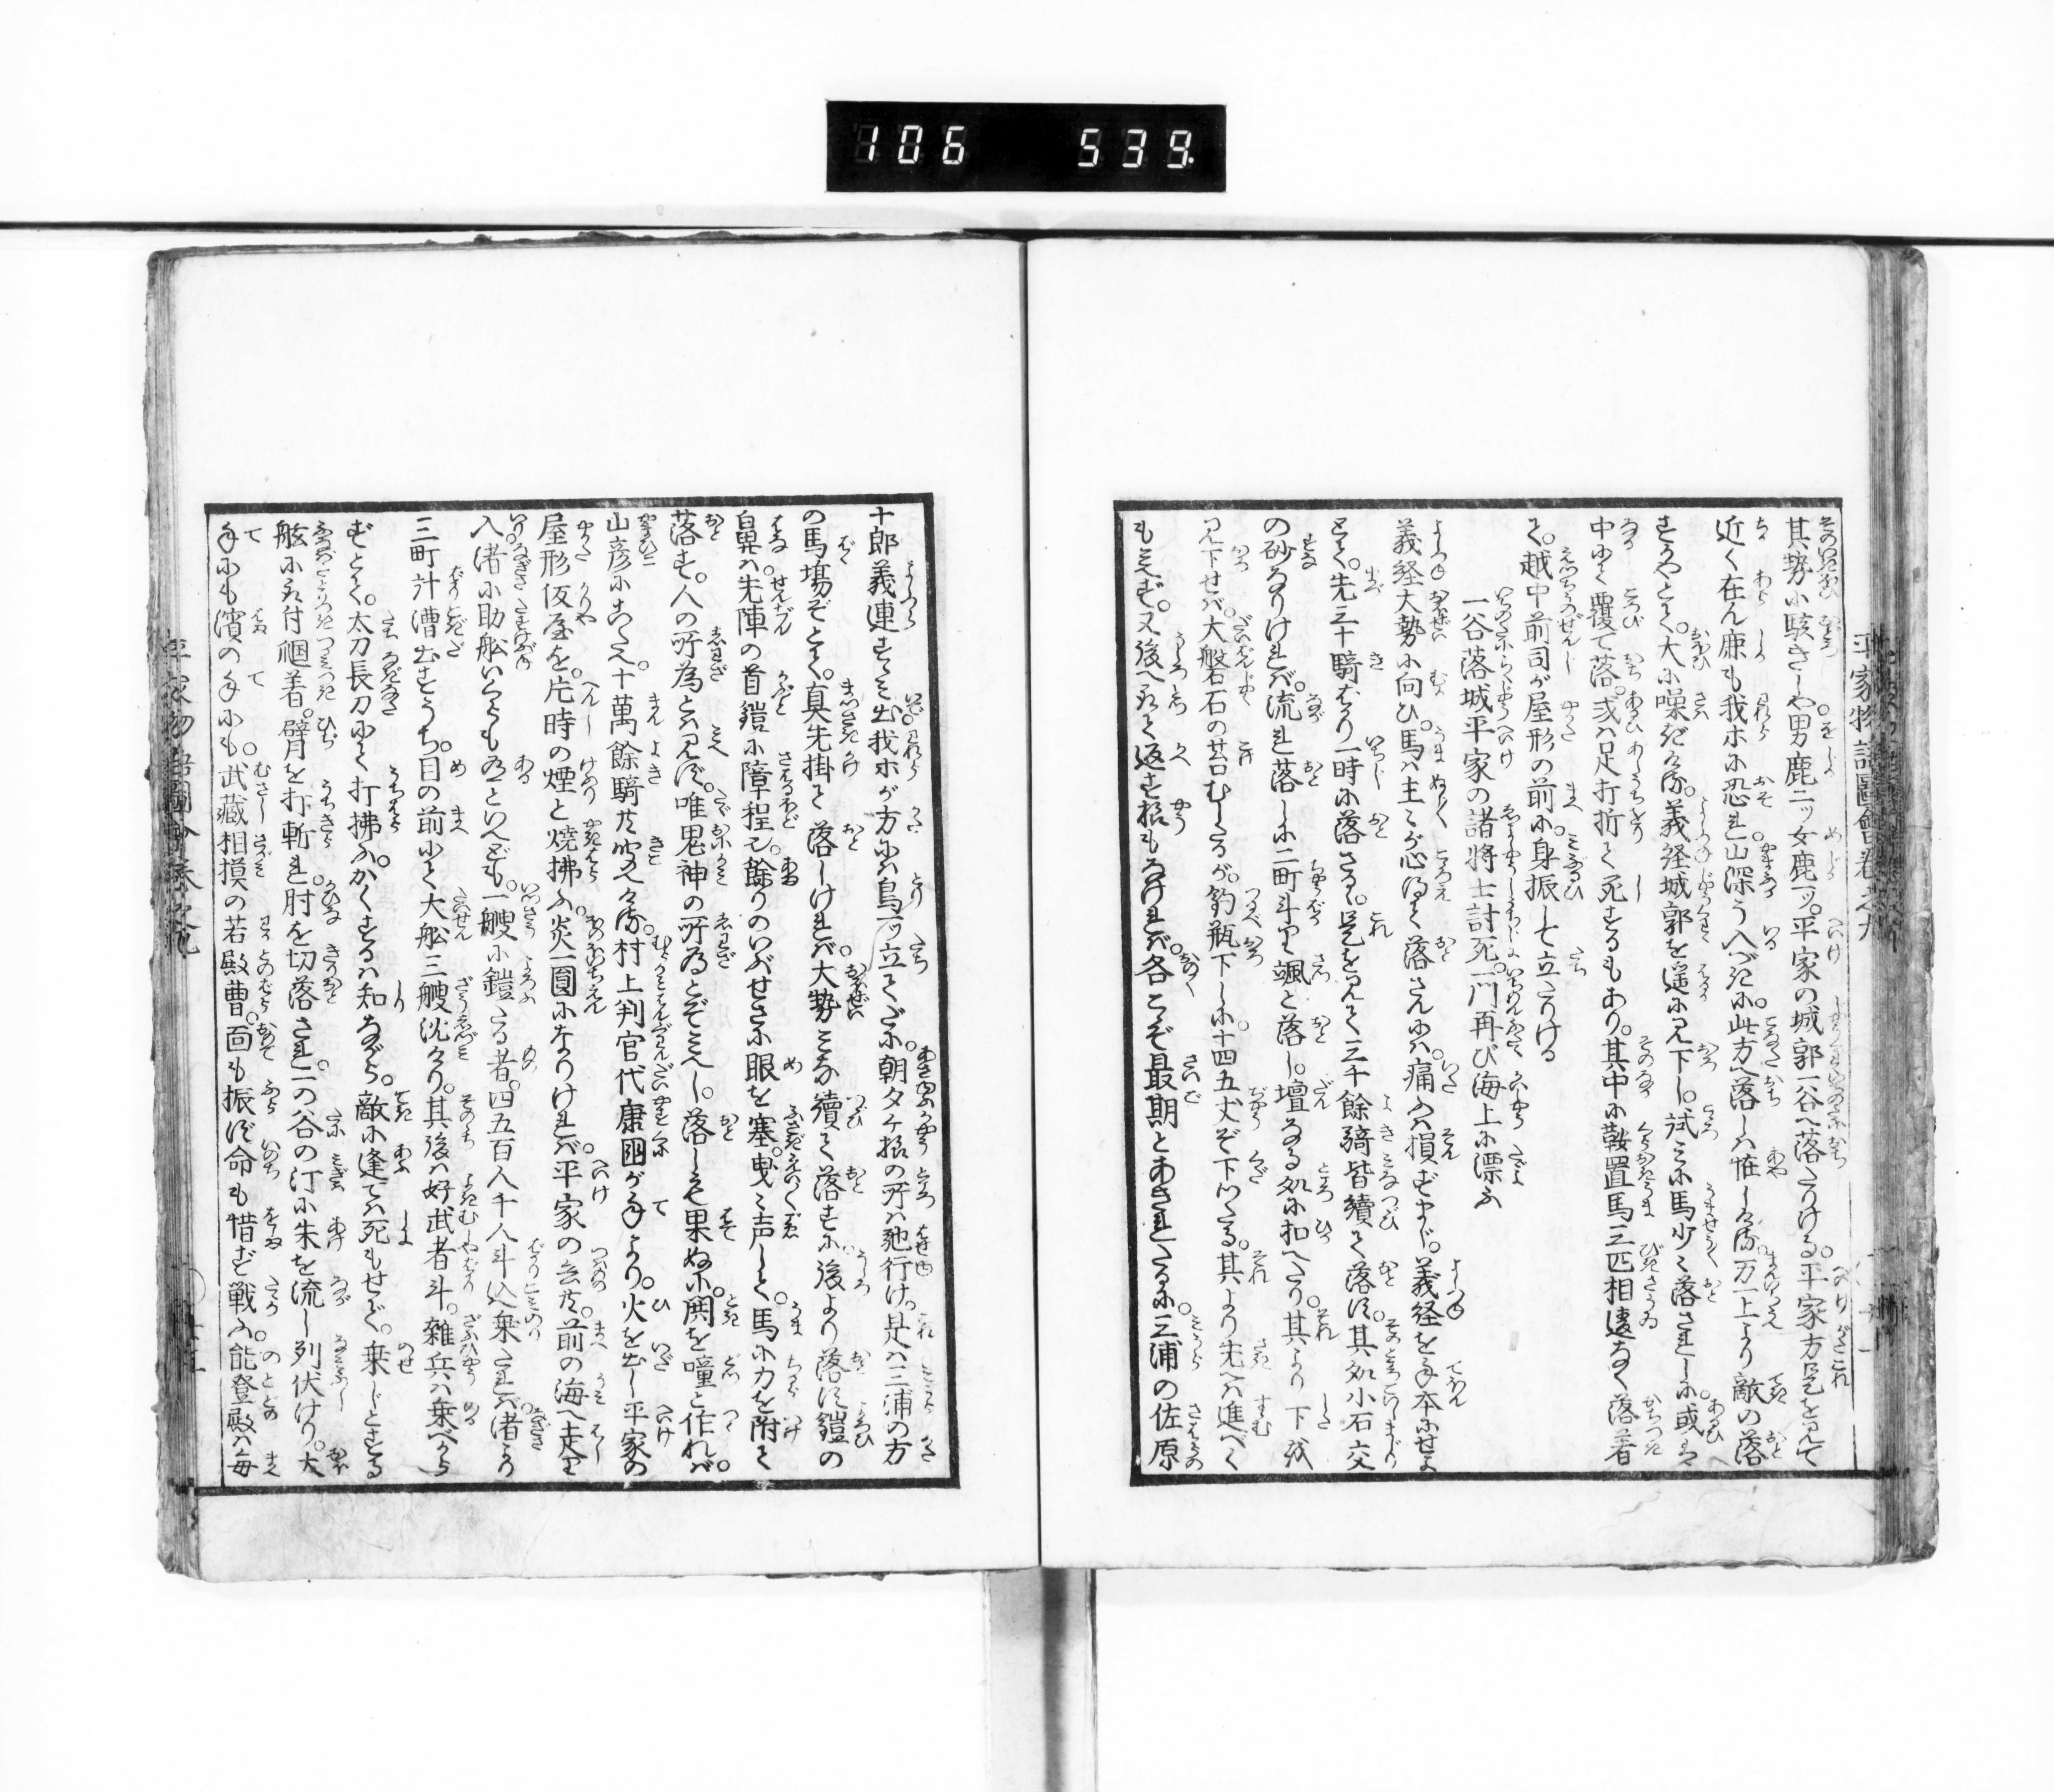 106 539
其勢に駭きしや男鹿二ッ女鹿一ッ。平家の城郭一谷へ落たりける。平家方是を見て
近く在ん鹿も我ホに恐れ。山深う入べきに。此方へ落しハ怪しけれ。万一上より敵の落
するやとて。大に噪ぎける。義経城郭を遥に見下し。試ミに馬少々落されしに。或ハ
中にて覆て落。或ハ足打折て死するもあり。其中に鞍置馬三匹相違なく落着
て。越中前司が屋形の前に。身振して立たりける
一谷落城平家の諸将士討死。一門再び海上に漂ふ
義経大勢に向ひ。馬ハ主々が心得て落さんにハ。痛ハ損ずまじ。義経を手本にせよ
とて。先三十騎ばかり一時に落さる。是を見て三千餘騎皆續て落す。其処小石交
の砂なりければ。流れ落しに二町斗り颯と落し。壇なる処に扣へたり。其より下を
見下せバ。大盤石の苔むしたるが。釣瓶下しに。十四五丈ぞ下つたる。其より先へハ進べく
も見えず。又後へ取て返す様もなければ。各こぞ最期とあきれたるに。三浦の佐原
十郎義連すゝミ出。我ホが方にハ鳥一ッ立てだに。朝夕ケ様の所ハ馳行け。是ハ三浦の方
の馬場ぞとて。真先掛て落しければ。大勢ミな續て落すに。後より落す鎧の
鼻ハ。先陣の首鎧に障程也。餘りのいぶせさに眼を塞。曳々声して。馬に力を附て
落す。人の所為とハ見えず。唯鬼神の所為とぞミへし。落しも果ぬに。閧を噇と作れバ。
山彦にこたへ。十萬餘騎共聞へける。村上判官代康国が手より。火を出し平家の
屋形仮屋を。片時の煙と焼拂ふ。炎一圓になりければ。平家の兵共。前の海へ走り
入。渚に助舩いくらも有といへども。一艘に鎧たる者。四五百人千人斗込乗たれバ。渚より
三町計漕出すうち。目の前にて大舩三艘沈けり。其後ハ好武者斗。雑兵ハ乗べから
ずとて。太刀長刀にて打拂ふ。かくするハ知ながら。敵に逢てハ死もせで。乗じとする
舷に取付搁着。臂を打斬れ。肘を切落され。一の谷の汀に朱を流し列伏けり。大
手にも濱の手にも。武蔵相摸の若殿曹。面も振ず命も惜まず戦ふ。能登殿ハ毎
平家物語圖會巻之九